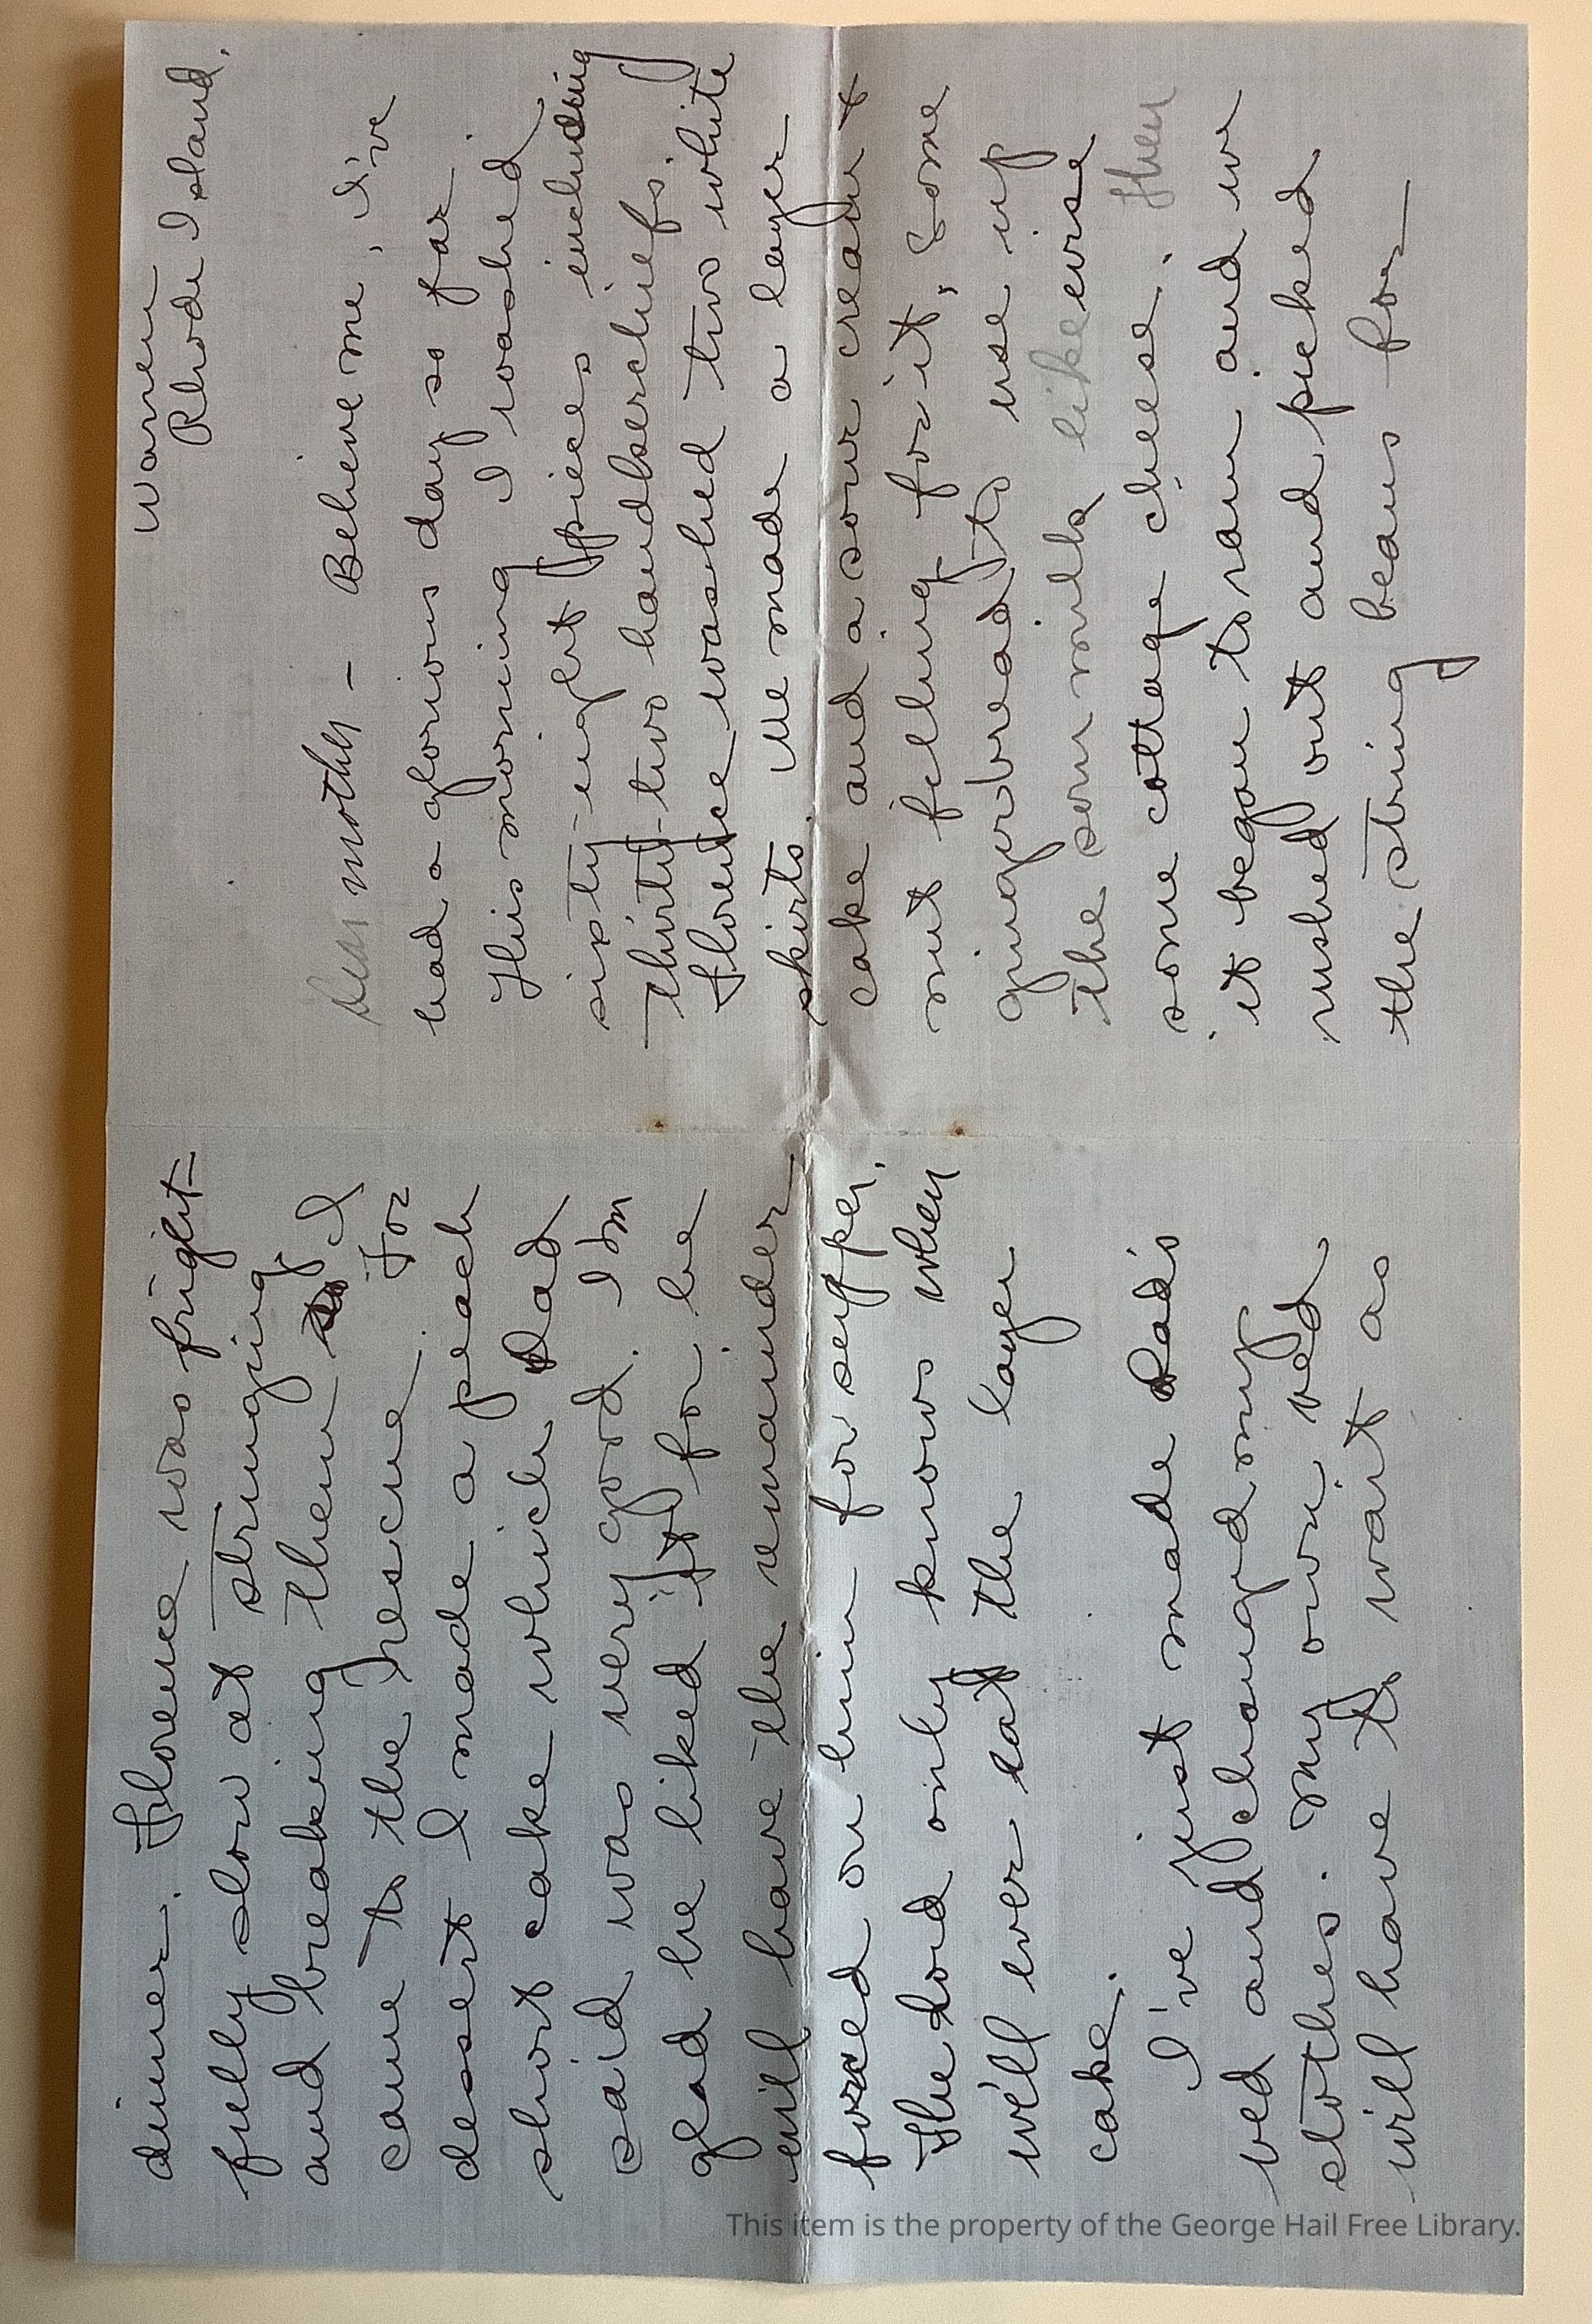 Warren
Rhode Island.
Dear Mother – Believe me, I've
had a glorious day so far.
This morning I washed
sixty-eight pieces including
thirty-two handkerchiefs.
Florence washed two white
skirts. We made a layer
cake and a sour cream &
nut filling for it, some
gingerbread to use up
the sour milk likewise
some cottage cheese. Then
it began to rain and we
rushed out and picked
the string beans for
dinner. Florence was fright-
fully slow at stringing
and breaking them so I
came to the rescue. For
desert I made a peach
short cake which Dad
said was very good. I'm
glad he liked it for he
will have the remainder
forced on him for supper.
The Lord only knows when
we'll ever eat the layer
cake.
I've just made Dad's
bed and changed my
clothes. My own bed
will have to wait as
This item is the property of the George Hail Free Library.